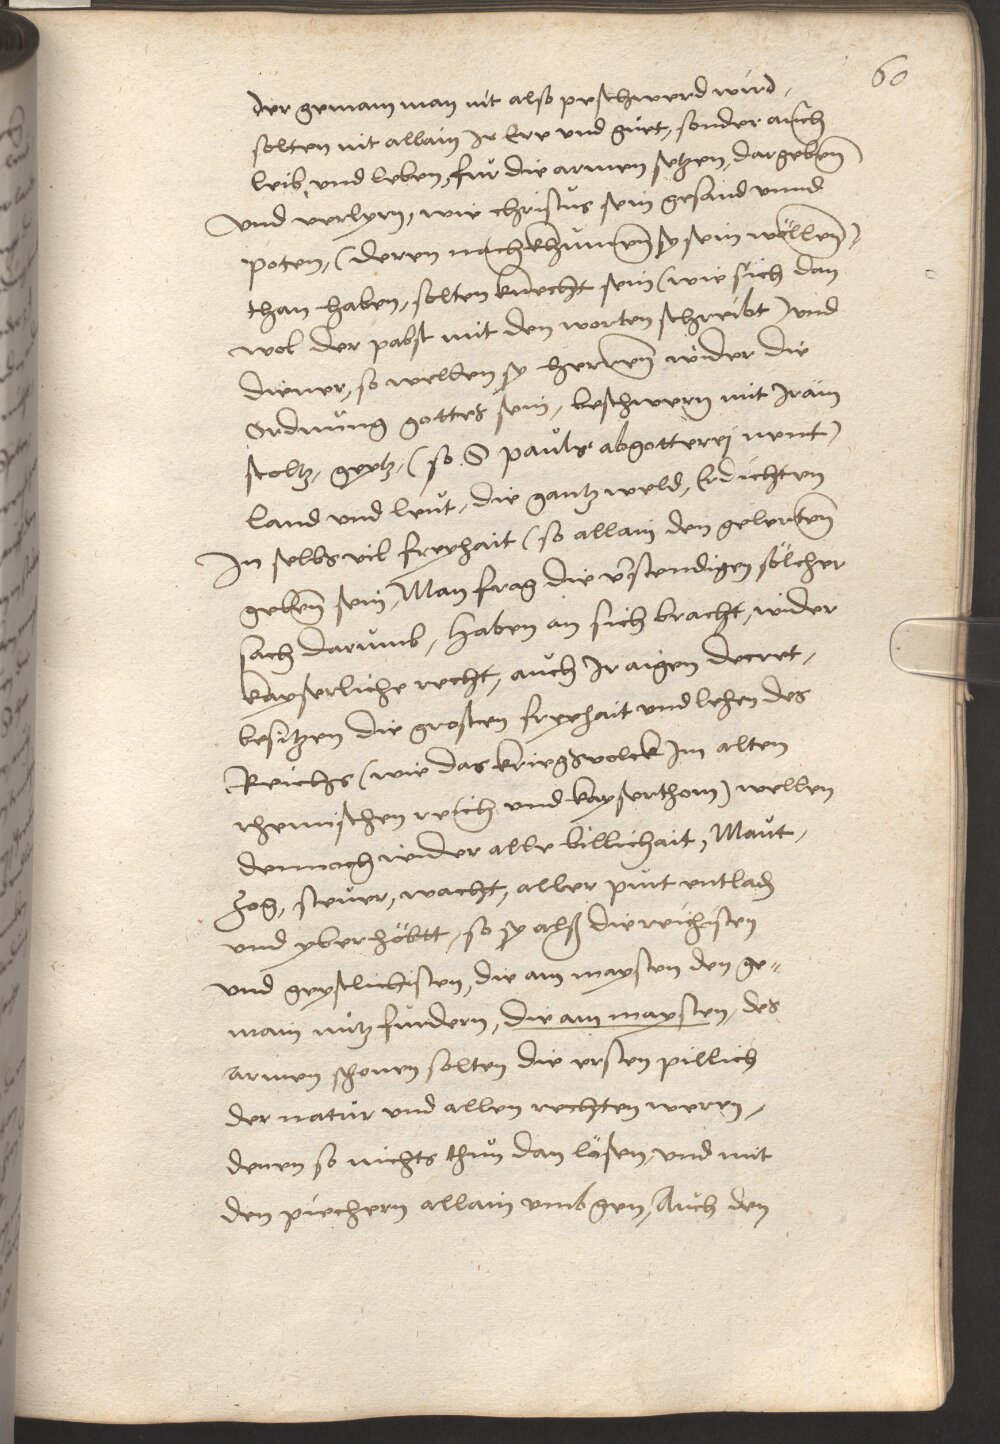 60
der gemain man nit also peschwerd wird,
solten nit allain Ir Eer und guet, sonder auch
leib, und leben, fur die armen setzen, dargeben
und verlyern, wie christus sein gesand unnd
poten, (deren nachkhumen sy sein wöllen)
than haben, solten knecht sein (wie sich dan
wol der pabst mit den worten schreibt) und
diener, so wellen sy herren wider die
ordnung gottes sein, beschwern mit Iram
stoltz, geytz, (so S pauls abgotterej nent)
land und leut, die gantz weld, Erdichten
In selbs vil freyhait (so allain den gelerten
geben sein, Man frag die verstendigen sölcher
sach darumb, haben an sich bracht, wider
kayserliche recht, auch Ir aigen decret,
besitzen die grosten freyhait und lehen des
Reichs (wie das kriegsvolck Im alten
rhemischen reich und kayserthom) wellen
dennoch wider alle billichait, Maut,
Zog, steuer, wacht, aller pürt entladen
und yberhöbtt, so sy alss die reichisten
und geystlichisten, die am maysten den ge-
main nutz furdern, die am maysten, des
armen schonen solten die ersten pillich
der natur und allen rechten weren,
denen so nichts thun dan lösen, und mit
den piechern allain umbgen, Auch den